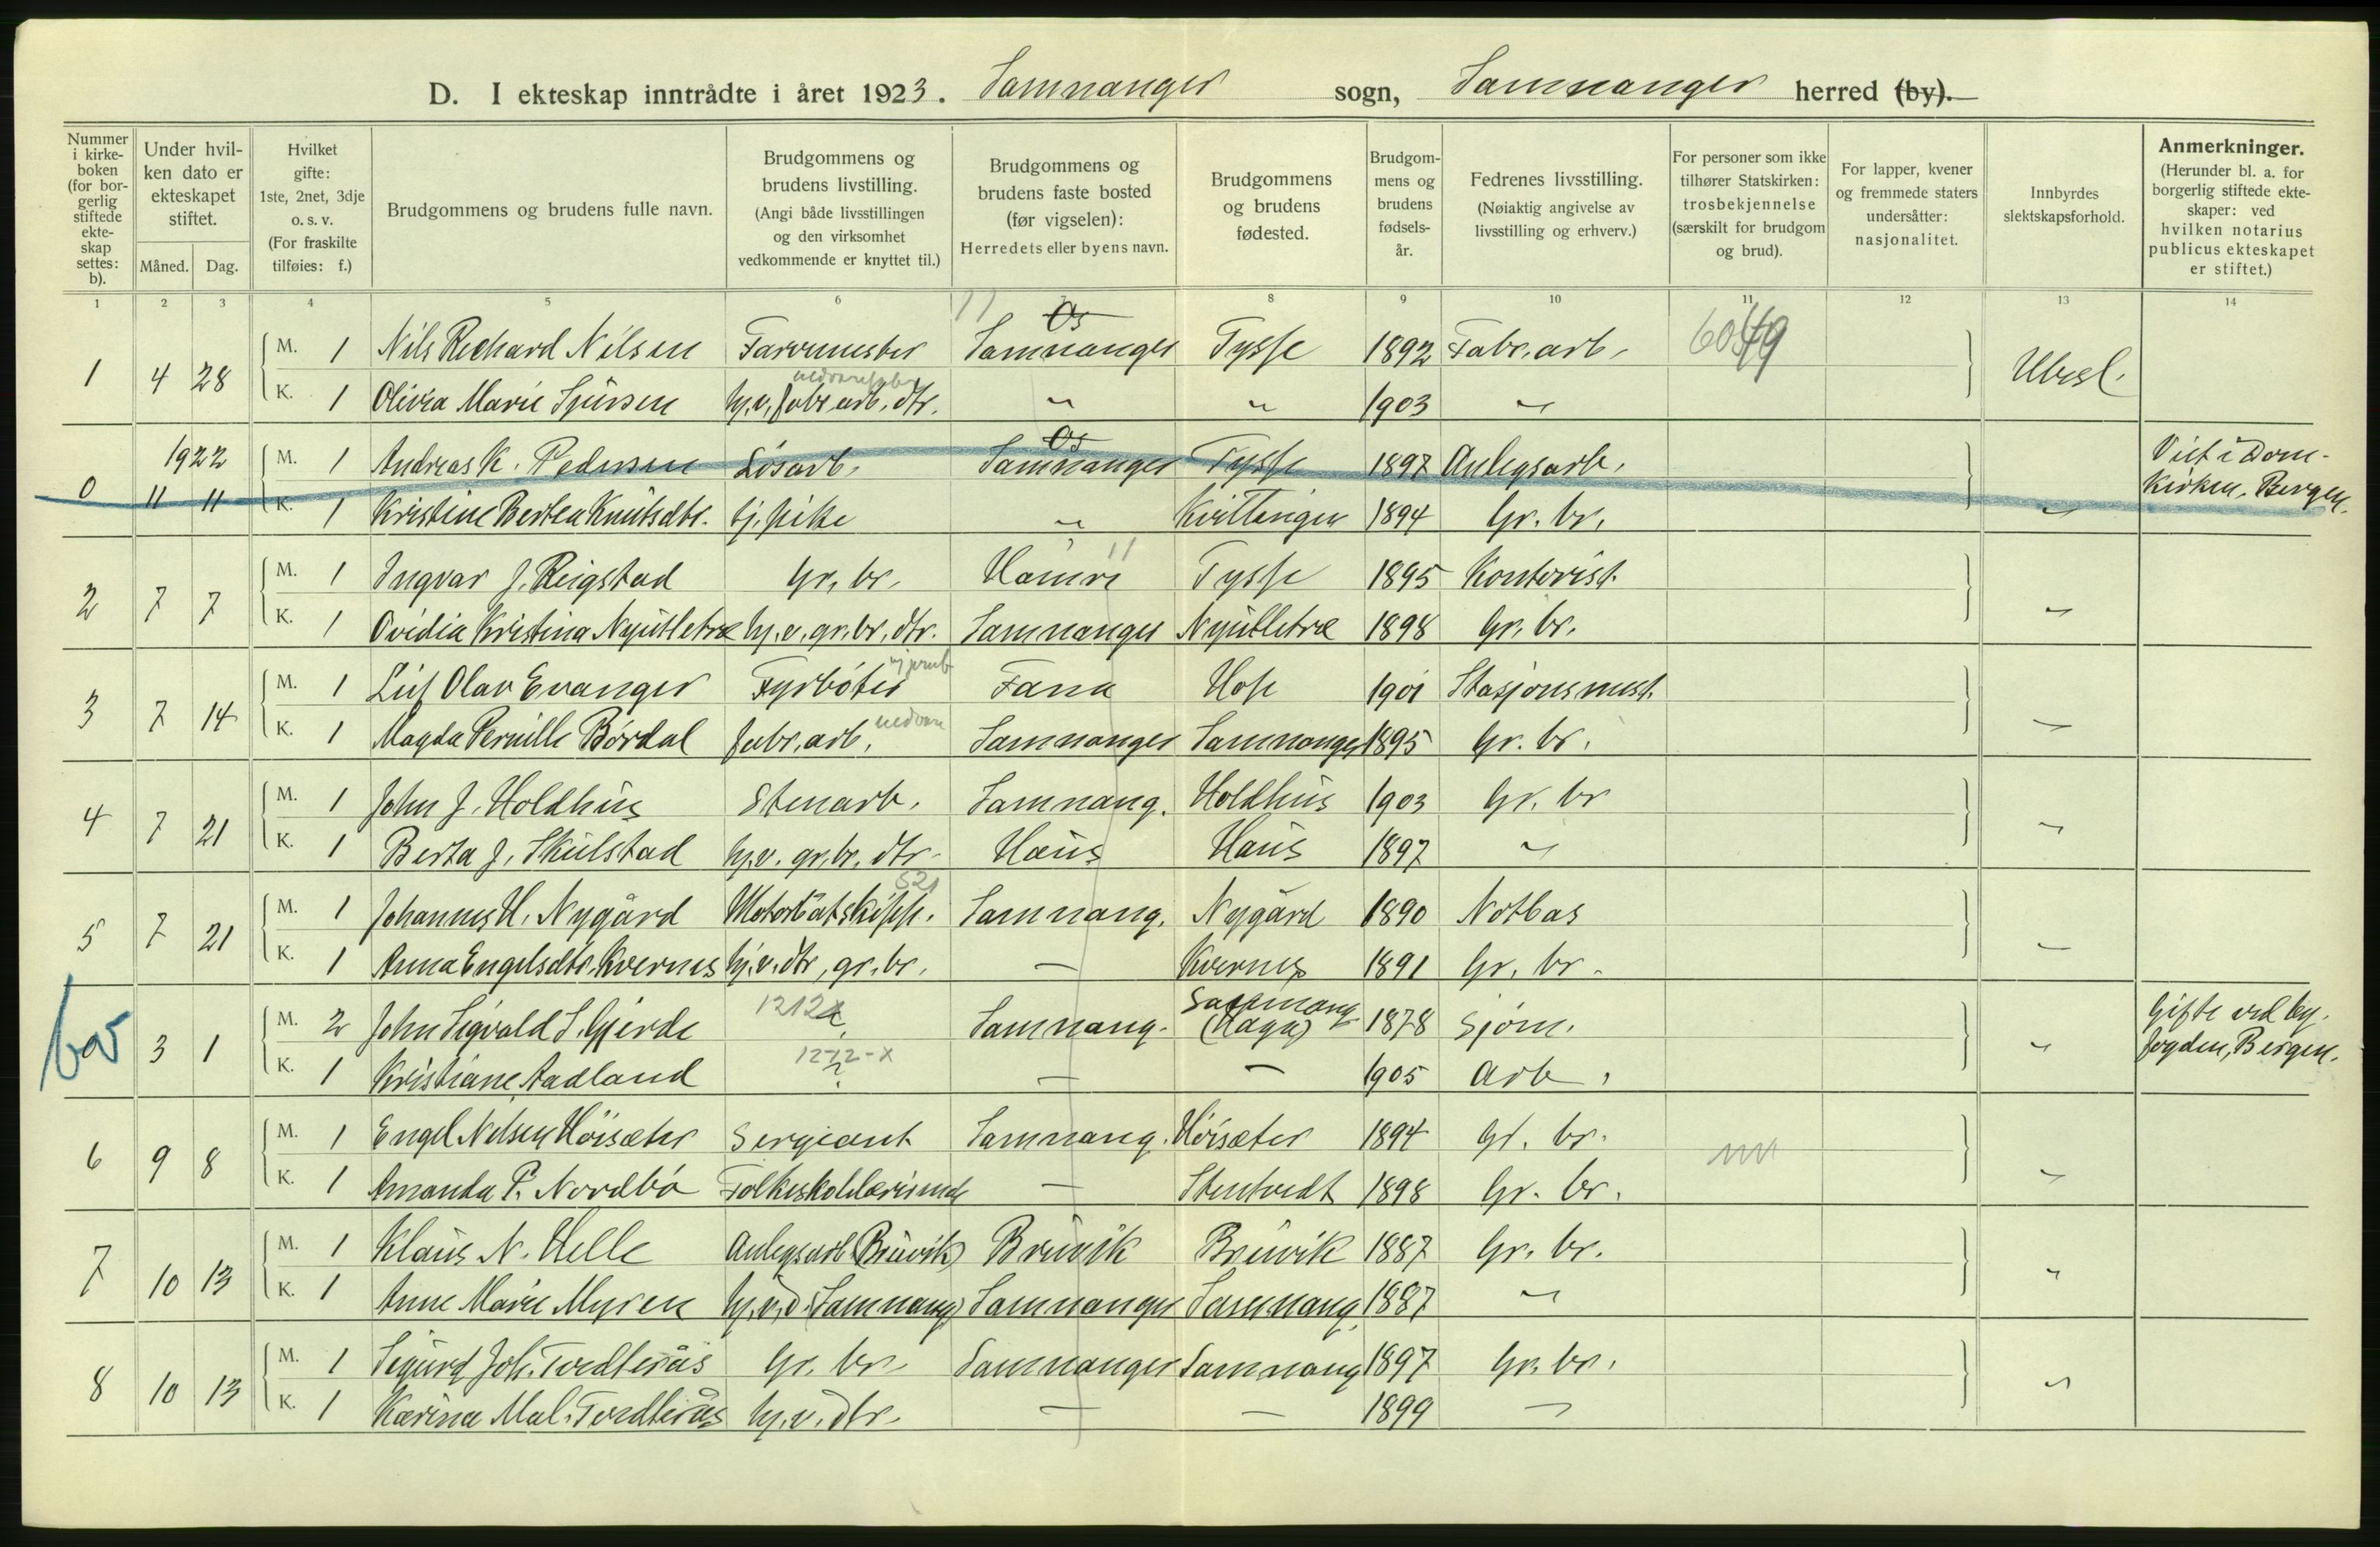 D. I ekteskap inntrådte i året 1923. Samnanger sogn, Samnanger herred (by).
Nummer i kirkeboken (for borgerlig stiftede ekteskap settes: b).
Under hvilken dato er ekteskapet stiftet.
Måned. Dag.
Hvilket gifte: 1ste, 2net, 3dje o. s. v. (For fraskilte tilføies: f.)
Brudgommens og brudens fulle navn.
Brudgommens og brudens livstilling. (Angi både livsstillingen og den virksomhet vedkommende er knyttet til.)
Brudgommens og brudens faste bosted (før vigselen): Herredets eller byens navn.
Brudgommens og brudens fødested.
Brudgommens og brudens fødselsår.
Fedrenes livsstilling. (Nøiaktig angivelse av livsstilling og erhverv.)
For personer som ikke tilhører Statskirken: trosbekjennelse (særskilt for brudgom og brud).
For lapper, kvener og fremmede staters undersåtter: nasjonalitet.
Innbyrdes slektskapsforhold.
Anmerkninger. (Herunder bl. a. for borgerlig stiftede ekteskaper: ved hvilken notarius publicus ekteskapet er stiftet.)
1 2 3 4 5 6 7 8 9 10 11 12 13 14
Os
1 4 28 M. 1 Nils Rechard Nilsen Farvemester Samnanger Tysse 1892 Fabr.arb. Ubesl.
K. 1 Olivia Marie Sjursen hj.v. fabr.arb. dtr. " " 1903 "
1922 Os
0 11 11 M. 1 Andreas K. Pedersen Løsarb. Samnanger Tysse 1897 Anlegsarb. Viet i Domkirken, Bergen.
K. 1 Kristine Bertea Knutsdtr. tj.pike " Kvittingen 1894 Gr. br. "
2 7 7 M. 1 Ingvar J. Reigstad Gr. br. Hamre Tysse 1895 Kontorist. "
K. 1 Ovidia Kristina Nyutletræ hj.v. gr.br. dtr. Samnanger Nyutletræ 1898 Gr. br.
3 7 14 M. 1 Leif Olav Evanger Fyrbøter Fana Hop 1901 Stasjonsmest. "
K. 1 Magda Pernille Børdal fabr.arb. Samnanger Samnanger 1895 Gr. br.
4 7 21 M. 1 John J. Holdhus Stenarb. Samnang. Holdhus 1903 Gr. br "
K. 1 Berta J. Skulstad hj.v. gr.br. dtr. Haus Haus 1897 "
521
5 7 21 M. 1 Johannes H. Nygård Motorbåtskipp. Samnang. Nygård 1890 Notbas "
K. 1 Anna Engelsdtr. Kvernes hj.v. dtr, gr.br. — Kvernes 1891 Gr. br.
3 1 M. 2 John Sigvald S. Gjerde Samnang. Samnang. (Haga) 1878 Sjøm. " Gifte ved byfogden, Bergen.
K. 1 Kristiane Aadland ? — — 1905 Arb.
6 9 8 M. 1 Engel Nelsen Høisæter Sergeant Samnang. Høisæter 1894 Gr. br. "
K. 1 Amanda P. Nordbø Folkeskolelærerinde — Stentvedt 1898 Gr. br.
7 10 13 M. 1 Klaus N. Helle Anlegsarb. (Bruvik) Bruvik Bruvik 1887 Gr. br. "
K. 1 Anne Marie Myren hj.v.d. (Samnang) Samnanger Samnang. 1887 "
8 10 13 M. 1 Sigurd Joh. Tordterås Gr. br. Samnanger Samnang 1897 Gr. br. "
K. 1 Karina Mal. Tordterås hj.v. dtr. — — 1899 "